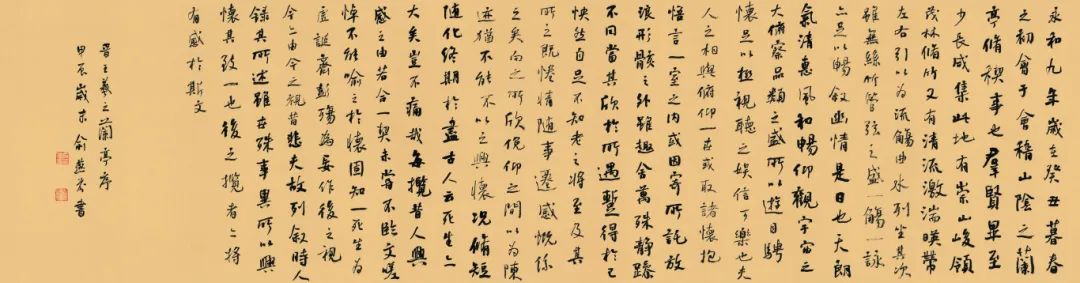 永和九年歲在癸丑暮春
之初會于會稽山陰之蘭
亭脩稧事也群賢畢至
少長咸集此地有崇山峻領
茂林脩竹又有清流激湍暎帶
左右引以為流觴曲水列坐其次
雖無絲竹管弦之盛一觴一詠
亦足以暢敘幽情是日也天朗
氣清惠風和暢仰觀宇宙之
大俯察品類之盛所以遊目騁
懷足以極視聽之娛信可樂也夫
人之相與俯仰一世或取諸懷抱
悟言一室之內或因寄所託放
浪形骸之外雖趣舍萬殊靜躁
不同當其欣於所遇暫得於己
怏然自足不知老之將至及其
所之既惓情隨事遷感慨係
之矣向之所欣俛仰之間以為陳
迹猶不能不以之興懷況脩短
隨化終期於盡古人云死生亦
大矣豈不痛哉每攬昔人興
感之由若合一契未嘗不臨文嗟
悼不能喻之於懷固知一死生為
虛誕齊彭殤為妄作後之視
今亦由今之視昔悲夫故列敘時人
錄其所述雖世殊事異所以興
懷其致一也後之攬者亦將
有感於斯文
晉王羲之蘭亭序
甲辰歲末俞燕 書